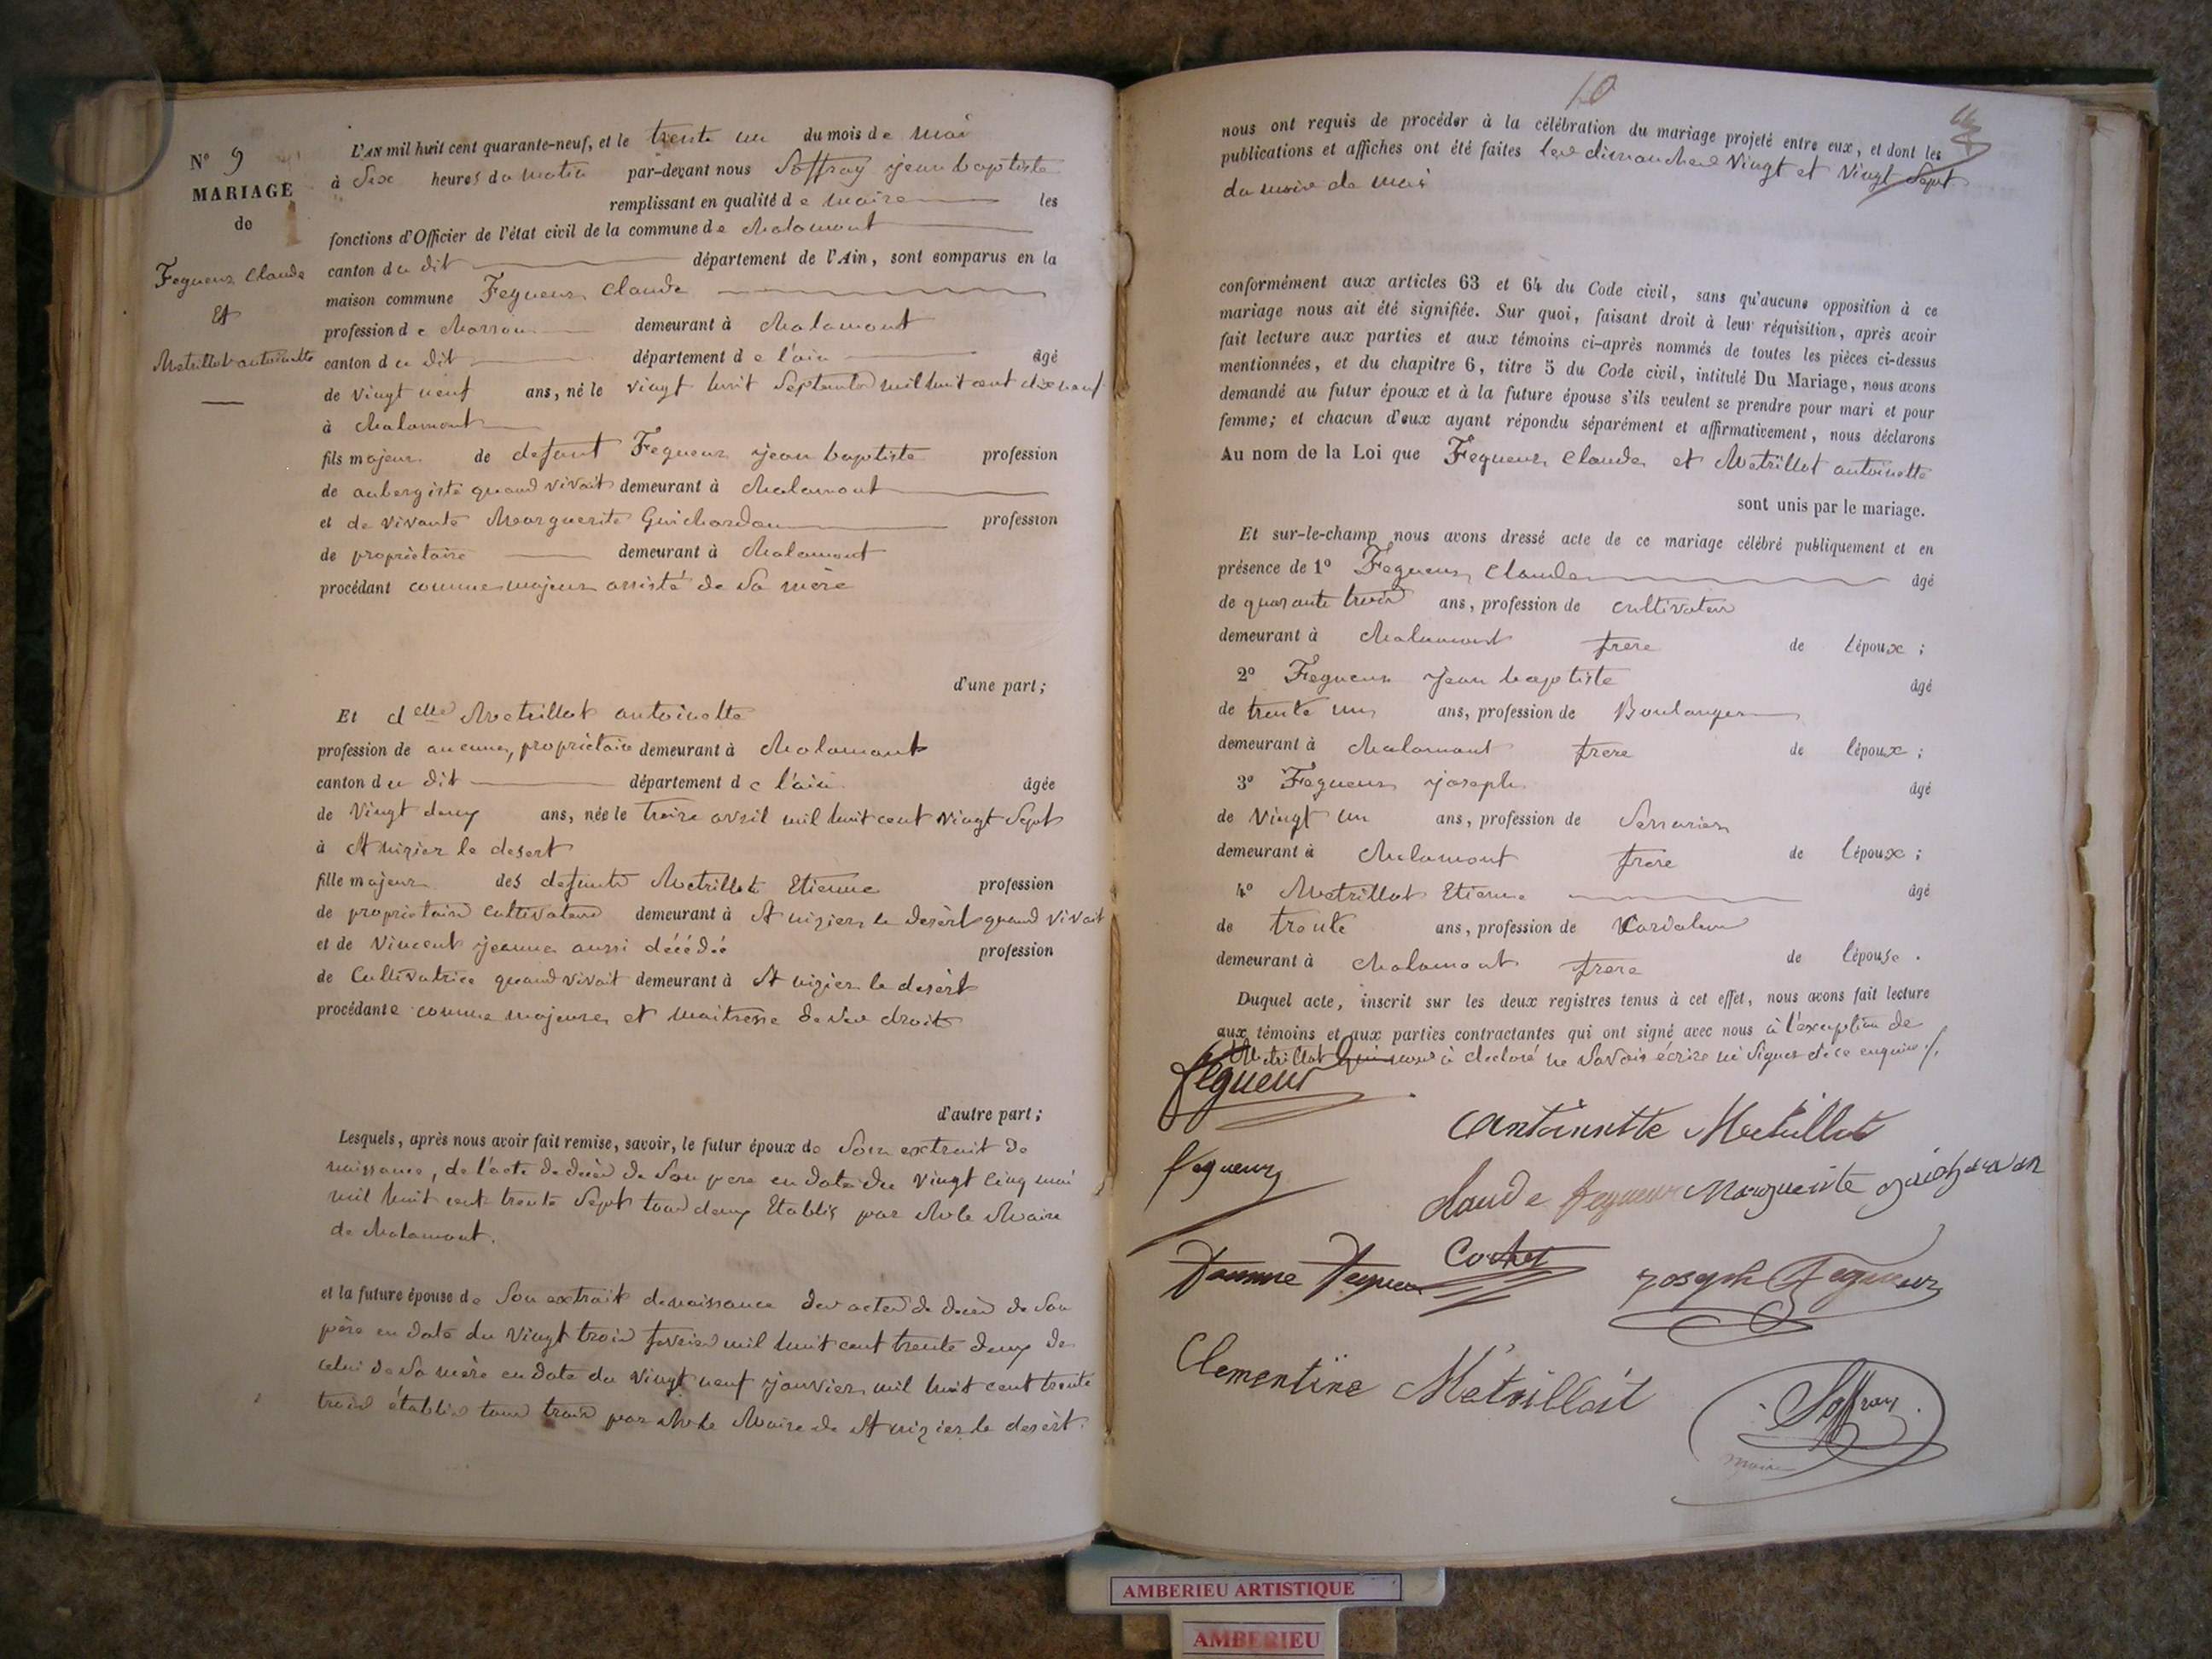 N° 9
MARIAGE
de
Fegueux Claude
Et
Metrillot antoinette
L'AN mil huit cent quarante-neuf, et le trente un du mois de mai
à Six heures du matin par-devant nous Soffray jean baptiste
remplissant en qualité de maire les
fonctions d'Officier de l'état civil de la commune de chalamont
canton du dit département de l'Ain, sont comparus en la
maison commune Fegueux Claude
profession de demeurant à chalamont
canton du dit département de l'ain âgé
de vingt neuf ans, né le vingt huit Septembre mil huit cent dix neuf
à chalamont
fils majeur de defunt Fegueux jean baptiste profession
de aubergiste quand vivait demeurant à chalamont
et de vivante Marguerite Guichardon profession
de propriétaire demeurant à chalamont
procédant comme majeur assisté de Sa mère
d'une part;
Et delle Metrillot antoinette
profession de aucune, propriétaire demeurant à chalamont
canton du dit département de l'ain âgée
de Vingt deux ans, née le treize avril mil huit cent vingt Sept
à St nizier le desert
fille majeure des defunts Metrillot Etienne profession
de propriétaire cultivateur demeurant à St nizier le desèrt quand vivait
et de Vincent jeanne aussi décédée profession
de Cultivatrice quand vivait demeurant à St nizier le desèrt
procédante comme majeure et maitresse de Ses droits
d'autre part;
Lesquels, après nous avoir fait remise, savoir, le futur époux de Son extrait de
naissance, de l'acte de décès de Son père en date du vingt cinq mai
mil huit cent trente Sept tous deux Etablis par Mr le Maire
de chalamont.
et la future épouse de Son extrait de naissance des actes de décès de Son
père en date du Vingt trois fevrier mil huit cent trente deux de
celui de Sa mère en date du vingt neuf janvier mil huit cent trente
trois établis tous trois par Mr le Maire de St nizier le desèrt.
10
nous ont requis de procéder à la célébration du mariage projeté entre eux, et dont les
publications et affiches ont été faites les dimanches Vingt et Vingt Sept
du mois de mai
conformément aux articles 63 et 64 du Code civil, sans qu'aucune opposition à ce
mariage nous ait été signifiée. Sur quoi, faisant droit à leur réquisition, après avoir
fait lecture aux parties et aux témoins ci-après nommés de toutes les pièces ci-dessus
mentionnées, et du chapitre 6, titre 5 du Code civil, intitulé Du Mariage, nous avons
demandé au futur époux et à la future épouse s'ils veulent se prendre pour mari et pour
femme; et chacun d'eux ayant répondu séparément et affirmativement, nous déclarons
Au nom de la Loi que Fegueux Claude et Metrillot antoinette
sont unis par le mariage.
Et sur-le-champ nous avons dressé acte de ce mariage célébré publiquement et en
présence de 1° Fegueux Claude âgé
de quarante trois ans, profession de cultivateur
demeurant à chalamont frere de l'époux;
2° Fegueux jean baptiste âgé
de trente un ans, profession de Boulanger
demeurant à chalamont frere de l'époux;
3° Fegueux joseph âgé
de Vingt un ans, profession de Serrurier
demeurant à chalamont frere de l'époux;
4° Metrillot Etienne âgé
de trente ans, profession de
demeurant à chalamont frere de l'épouse.
Duquel acte, inscrit sur les deux registres tenus à cet effet, nous avons fait lecture
aux témoins et aux parties contractantes qui ont signé avec nous à l'exception de
Metrillot à declaré ne savoir écrire ni signer de ce enquis
fegueux
Antoinette Metrillot
fegueux
Claude fegueux Marguerite guichardon
Cochet
Joseph Fegueux
Clementine Métrillot
Soffray
maire
AMBERIEU ARTISTIQUE
AMBERIEU